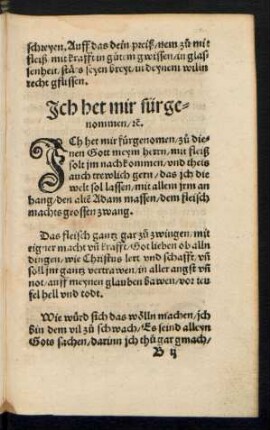 schreyen. Auff das dein preiß/nem zů mit
fleiß mit krafft in gůtem gwissen/in glas
senheit/stās seyen breyt/in deynem willn
recht gflissen.
Jch het mir fürge-
nommen/ꝛc.
JCh het mir fürgenomen/zů die-
nen Gott meym herrn/mit fleiß
solt jm nachkommen/vnd theis
auch trewlich gern/das jch die
welt sol lassen/mit allem jrm an
hang/den altē Adam massen/dem fleisch
machts grossen zwang.
Das fleisch gantz gar zů zwingen/mit
eigner macht vñ krafft/Got lieben ob alln
dingen/wie Christus lert vnd schafft/vñ
soll jm gantz vertrawen/in aller angst vñ
not/auff meynen glauben bawen/vor teu
fel hell vnd todt.
Wie würd sich das wölln machen/jch
bin dem vil zů schwach/Es seind alleyn
Gots sachen/darinn jch thů gar gmach/
B ij